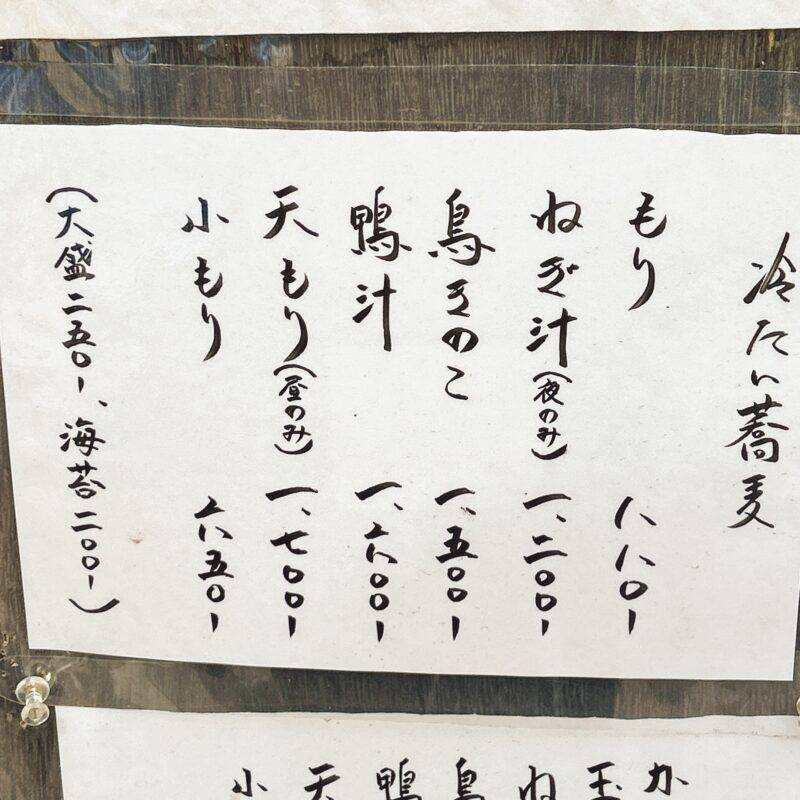 冷たい蕎麦
もり 八八〇-
ねぎ汁(夜のみ) 一、二〇〇-
鳥きのこ 一、五〇〇-
鴨汁 一、六〇〇-
天もり(昼のみ) 一、七〇〇-
小もり 六五〇-
(大盛二五〇-、海苔二〇〇-)
か
玉
ね
鳥
鴨
天
小